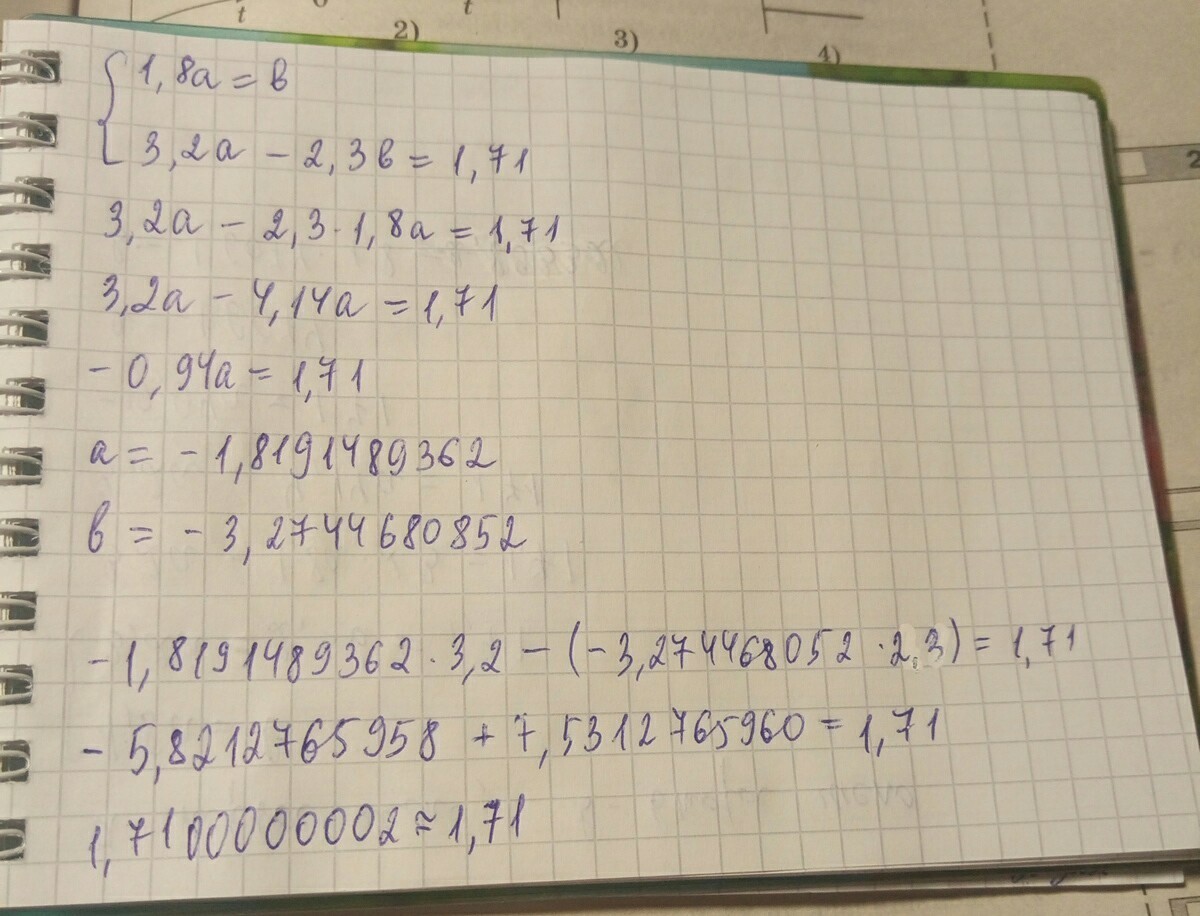 t t
2) 3) 4)
2
{ 1,8a = в
3,2a - 2,3в = 1,71
3,2a - 2,3·1,8a = 1,71
3,2a - 4,14a = 1,71
- 0,94a = 1,71
a = - 1,8191489362
в = - 3,2744680852
-1,8191489362·3,2 - (-3,274468052·2,3) = 1,71
- 5,8212765958 + 7,5312765960 = 1,71
1,7100000002 ≈ 1,71